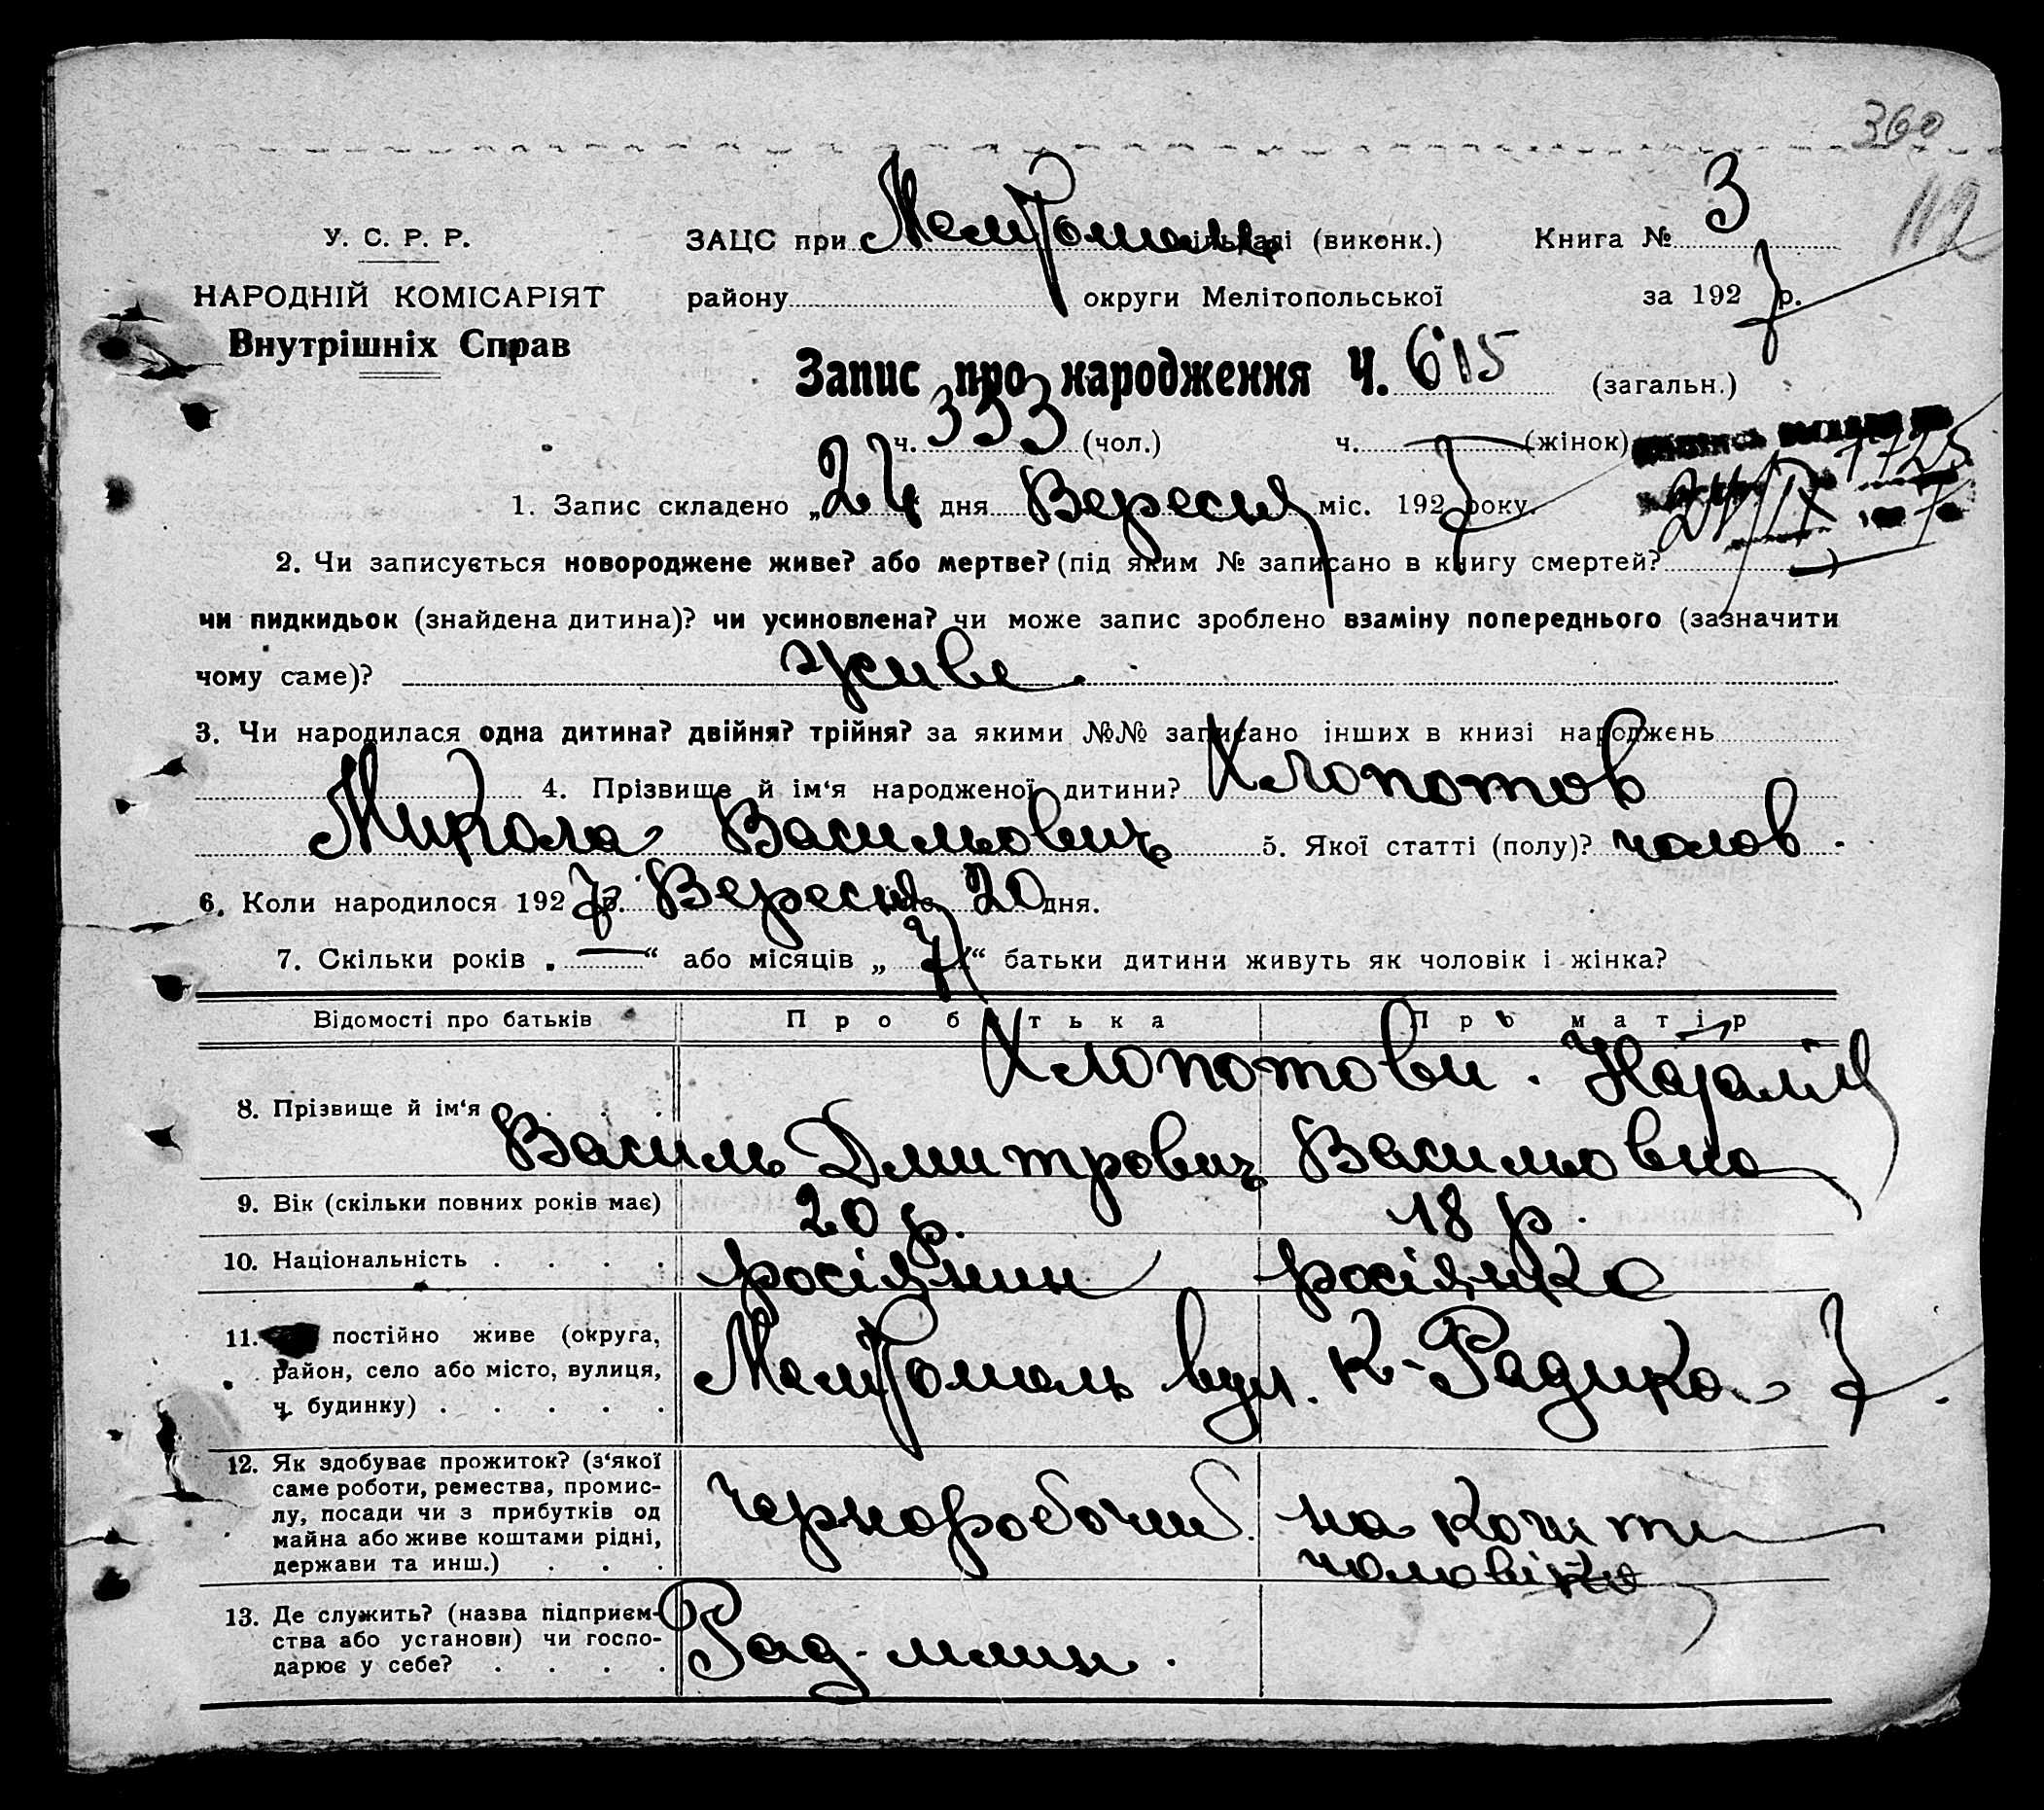 360
112
У. С. Р. Р.
НАРОДНІЙ КОМІСАРІЯТ
Внутрішніх Справ
ЗАЦС при Мелітопольск (виконк.) Книга № 3
району округи Мелітопольської за 1927 р.
Запис про народження Ч. 615 (загальн.)
ч. 333 (чол.) ч. — (жінок)
1725
24/IX 7
1. Запис складено „24“ дня Вересня міс. 1927 року.
2. Чи записується новороджене живе? або мертве? (під яким № записано в книгу смертей?
чи пидкидьок (знайдена дитина)? чи усиновлена? чи може запис зроблено взаміну попереднього (зазначити
чому саме)? живе.
3. Чи народилася одна дитина? двійня? трійня? за якими №№ записано інших в книзі народжень
4. Прізвище й ім‘я народженої дитини? Хлопотов
Микола Васильович 5. Якої статті (полу)? чолов.
6. Коли народилося 1927 р. Вересня 20 дня.
7. Скільки років „—“ або місяців „7“ батьки дитини живуть як чоловік і жінка?
Відомості про батьків Про батька Про матір
8. Прізвище й ім‘я Хлопотови. Наталія
Василь Дмитрович Васильовна
9. Вік (скільки повних років має) 20 р. 18 р.
10. Національність росіянин росіянка
11. постійно живе (округа,
район, село або місто, вулиця,
ч. будинку)
Мелітополь вул. К-Радика 7.
12. Як здобуває прожиток? (з‘якої
саме роботи, ремества, промис-
лу, посади чи з прибутків од
майна або живе коштами рідні,
держави та инш.)
чернороб очий. на кошти
чоловіка
13. Де служить? (назва підприєм-
ства або установи) чи госпо-
дарює у себе?
Рад. млин.